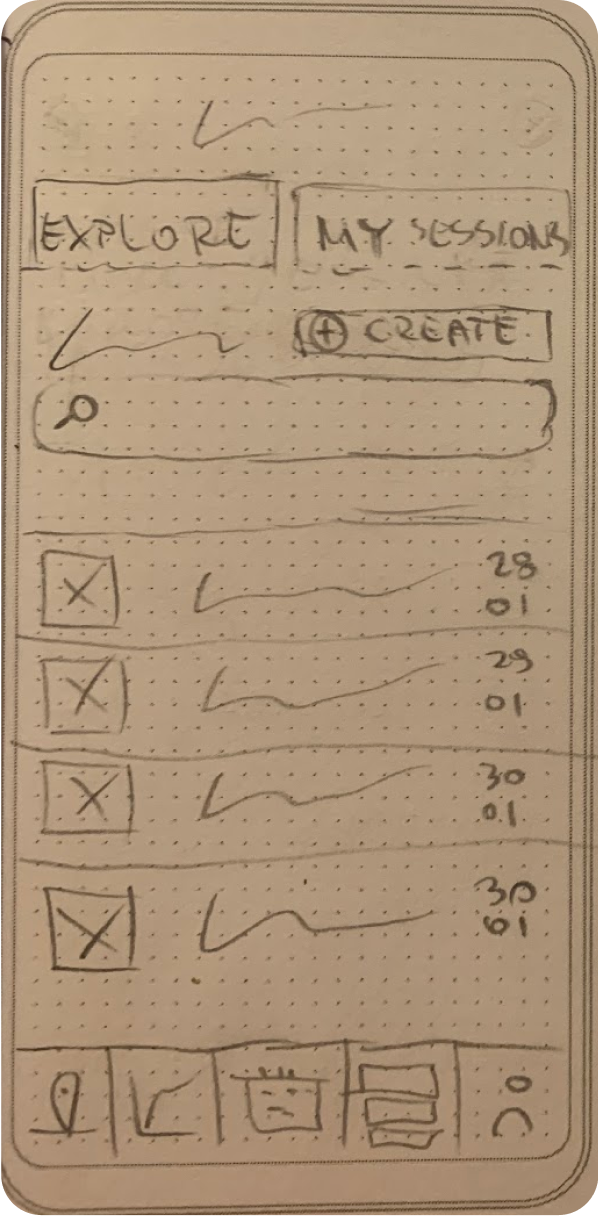 EXPLORE
MY SESSIONS
CREATE
28
01
29
01
30
01
30
01